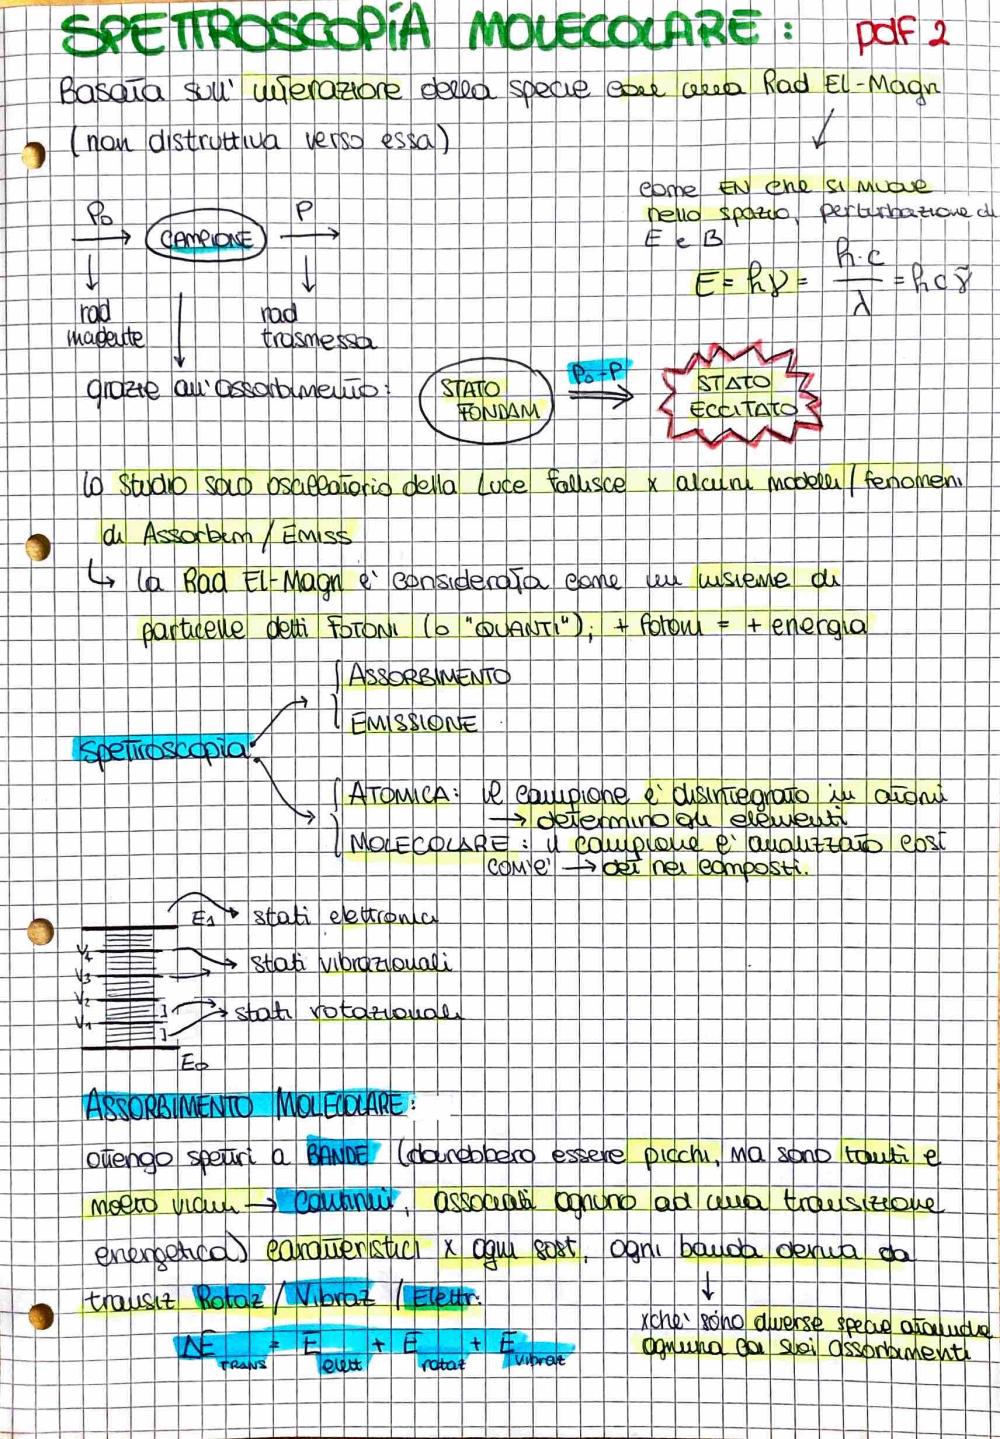 SPETTROSCOPIA MOLECOLARE: pdf 2
Basata sull' interazione della specie con una Rad El-Magn
(non distruttiva verso essa)
come EN che si muove
nello spazio, perturbazione di
E e B
E = hγ = h·c / λ = hcγ̄
P₀ → CAMPIONE P →
rad
incidente
rad
trasmessa
grazie all'assorbimento:
STATO
FONDAM
P₀-P
STATO
ECCITATO
lo studio solo oscillatorio della luce fallisce x alcuni modelli/fenomeni
di Assorbim/Emiss
↳ la Rad El-Magn è considerata come un insieme di
particelle detti FOTONI (o "QUANTI"); + fotoni = + energia
ASSORBIMENTO
EMISSIONE
Spettroscopia
ATOMICA: il campione è disintegrato in atomi
→ determino gli elementi
MOLECOLARE: il campione è analizzato così
COM'E' → det nei composti.
E₁ → stati elettronici
V₄
→ stati vibrazionali
V₃
V₂
→ stati rotazionali
V₁
E₀
ASSORBIMENTO MOLECOLARE:
ottengo spettri a BANDE (dovrebbero essere picchi, ma sono tanti e
molto vicini → continui, associati ognuno ad una transizione
energetica) caratteristici x ogni sost, ogni banda deriva da
transiz Rotaz/Vibraz/Elettr:
xchè sono diverse specie atomiche
ognuna coi suoi assorbimenti
ΔE TRANS = E elett + E rotaz + E vibraz